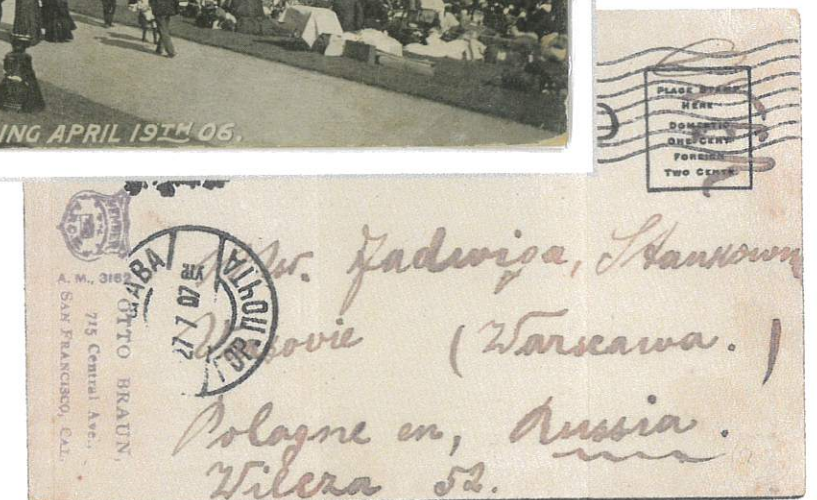 ING APRIL 19TH 06.
PLACE STAMP
HERE
DOMESTIC
ONE CENT
FOREIGN
TWO CENTS
A. M., 3162
OTTO BRAUN,
715 Central Ave.,
SAN FRANCISCO, CAL.
27 7 07
Jadwiga,
(Warszawa.)
Pologne en, Russia.
Wilcza 52.